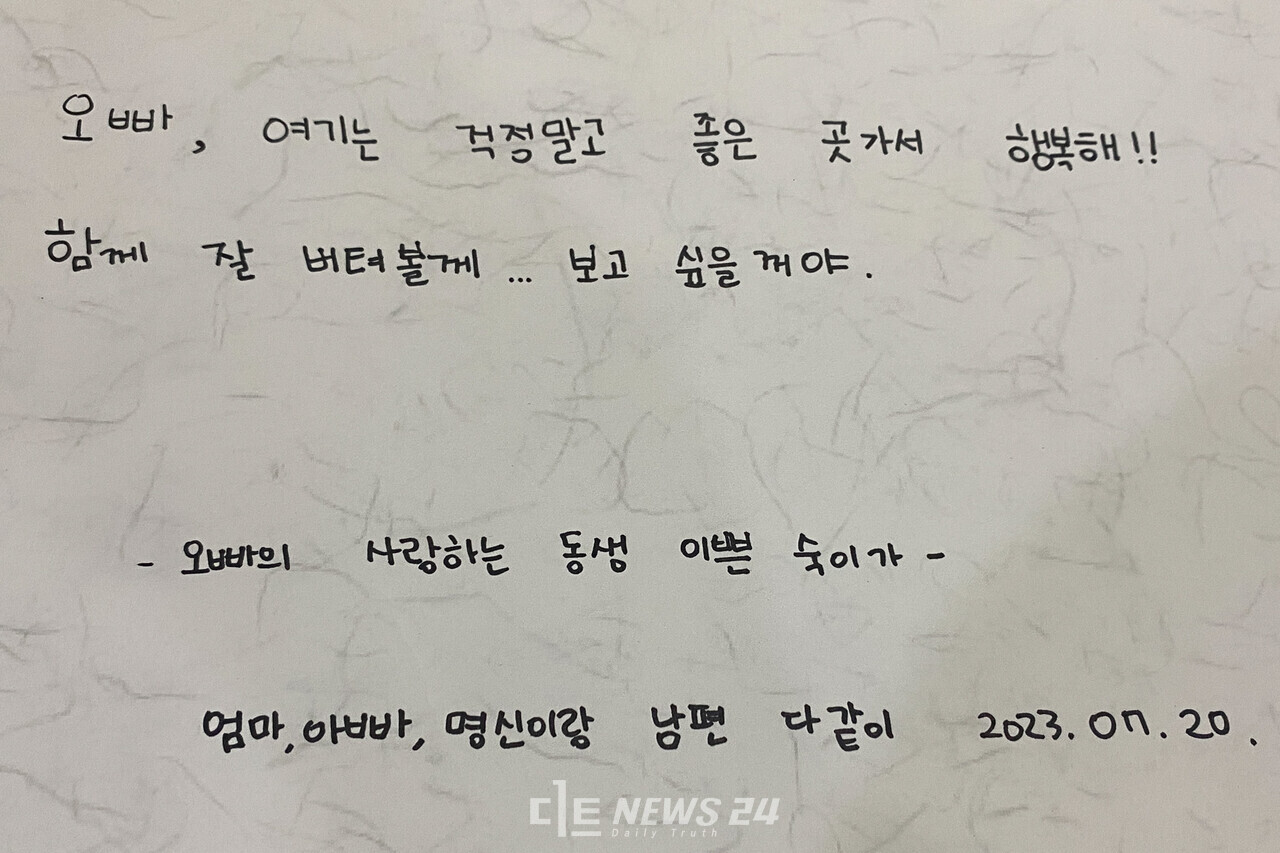 오빠, 여기는 걱정말고 좋은 곳가서 행복해!!
함께 잘 버텨볼께... 보고 싶을꺼야.
- 오빠의 사랑하는 동생 이쁜 숙이가 -
엄마, 아빠, 명신이랑 남편 다같이 2023. 07. 20.
더트 NEWS 24
Daily Truth